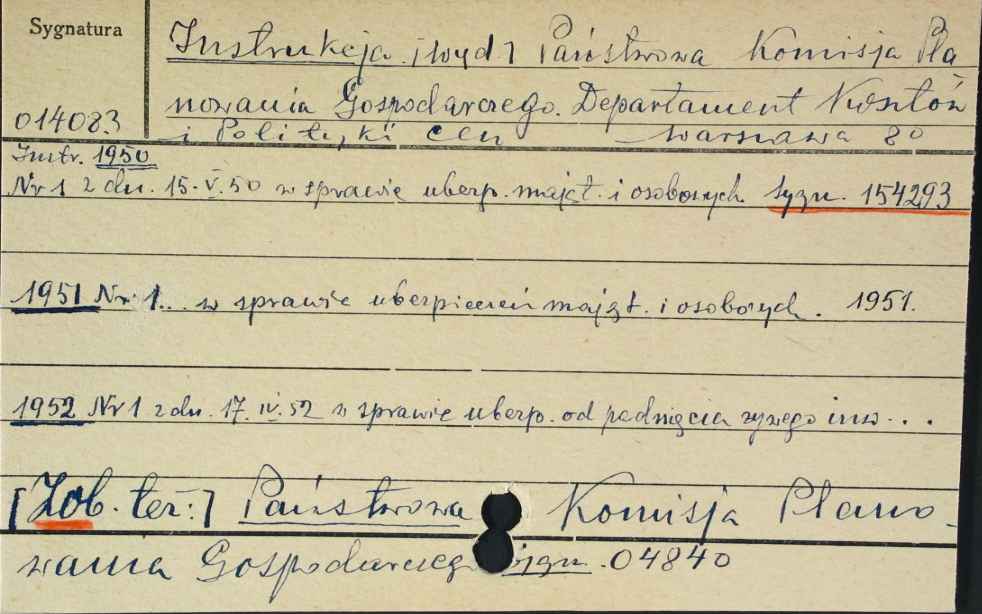 Sygnatura
Instrukcja. [wyd.] Państwowa Komisja Pla
nowania Gospodarczego. Departament Kosztów
014083
i Polityki Cen Warszawa 80
Instr. 1950
Nr 1 z dn. 15.V.50 w sprawie ubezp. mająt. i osobowych sygn. 154293
1951 Nr. 1... w sprawie ubezpieczeń mająt. i osobowych. 1951.
1952 Nr 1 z dn. 17.IV.52 w sprawie ubezp. od padnięcia żywego inw...
[Zob. też:] Państwowa Komisja Plano-
wania Gospodarczego sygn. 04840